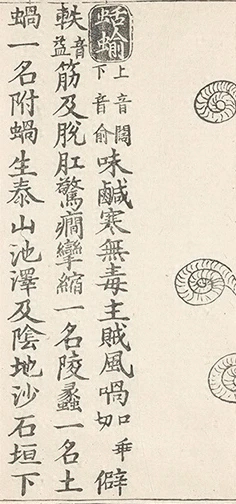 蛞蝓上音闊下音俞味鹹寒無毒主賊風喎口乖切僻
軼音益筋及脫肛驚癇攣縮一名陵蠡一名土
蝸一名附蝸生泰山池澤及陰地沙石垣下